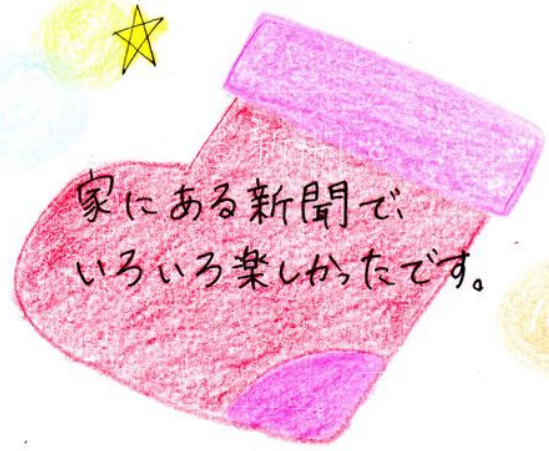 家にある新聞で、
いろいろ楽しかったです。